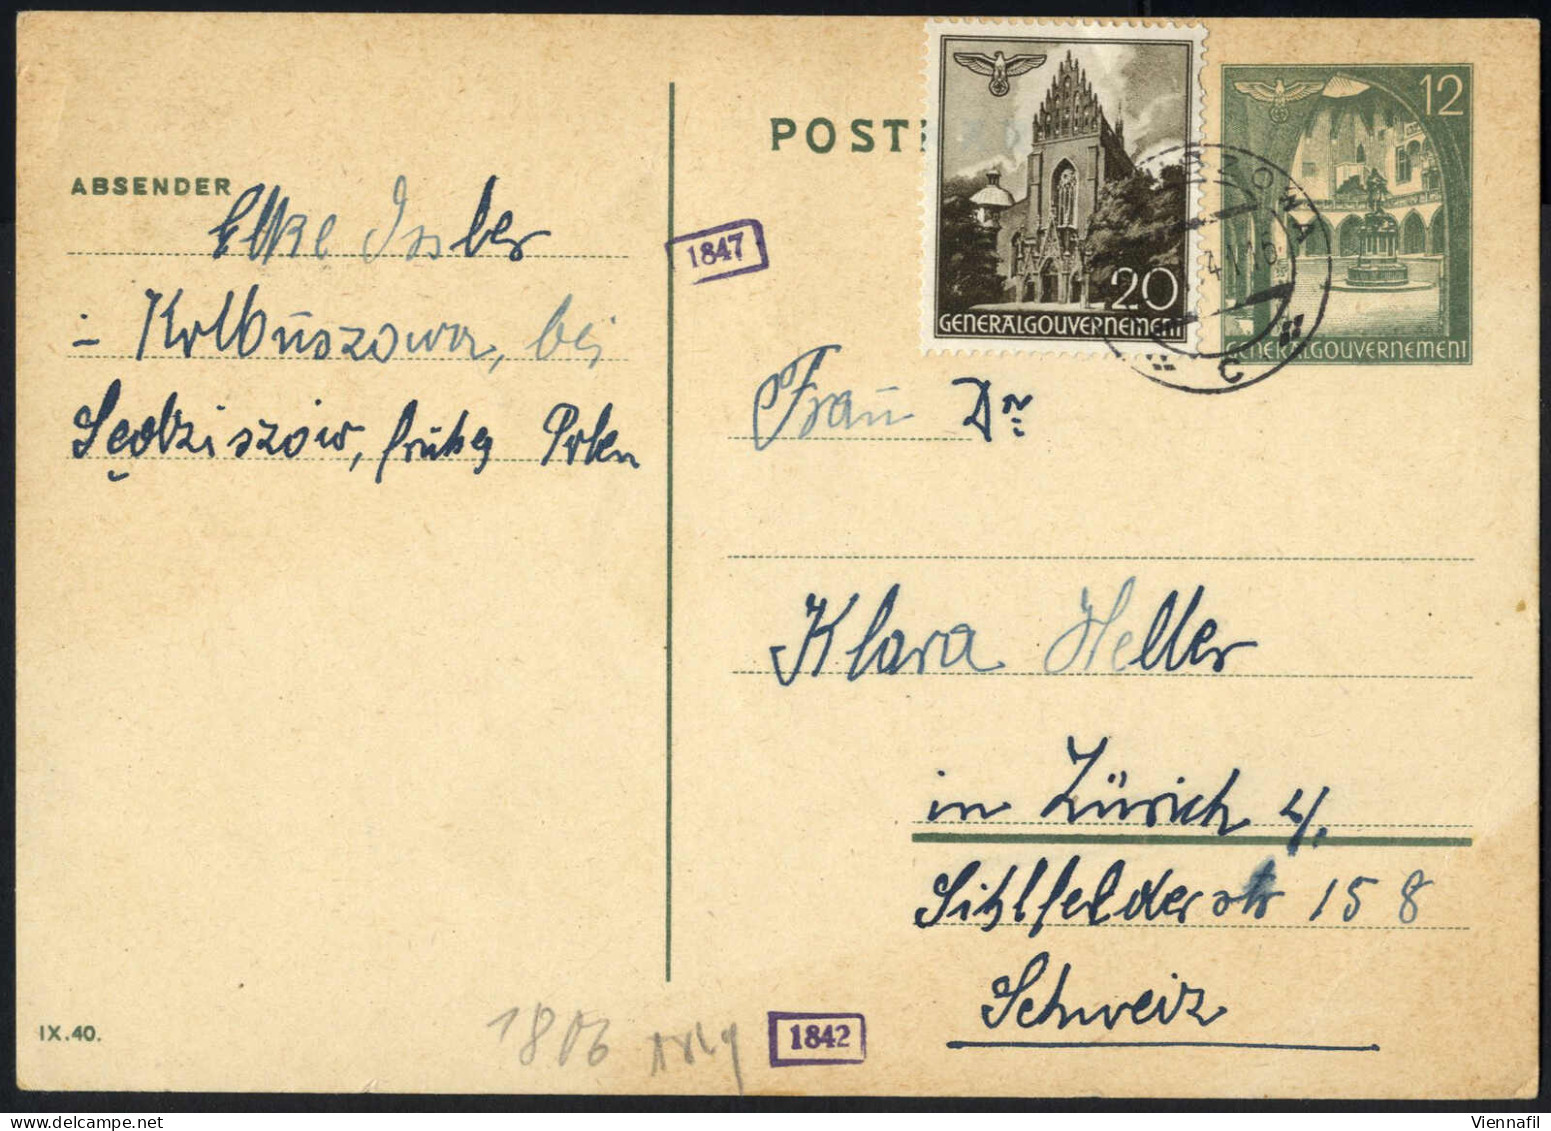 ABSENDER
Elke Issler
- Kolbuszowa, bei
Sędziszów, früher Polen
IX.40.
1847
POST
20
GENERALGOUVERNEMENT
12
GENERALGOUVERNEMENT
Frau Dr
Klara Heller
in Zürich 4,
Sihlfelderstr 158
Schweiz
1803
1842
Viennafil